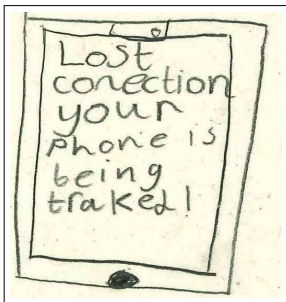 Lost
conection
your
phone is
being
traked!